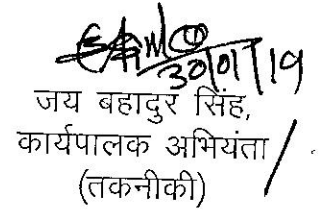 30/01/19
जय बहादुर सिंह,
कार्यपालक अभियंता
(तकनीकी)